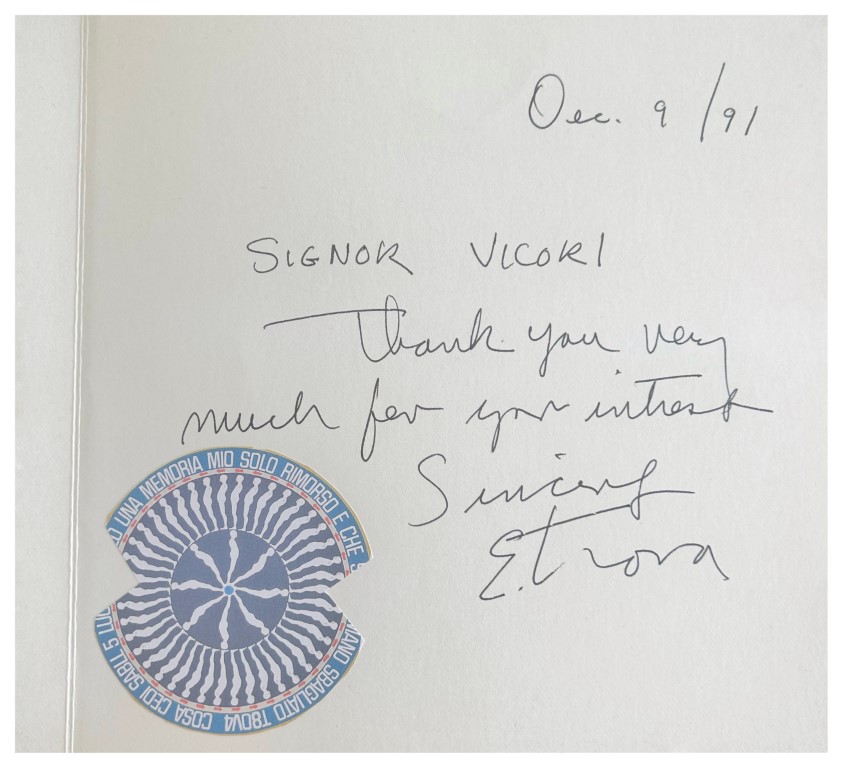 Dec. 9 /91
SIGNOR VICORI
Thank you very
much for your intrest
Sincerly
E. Trova
UNA MEMORIA MIO SOLO RIMORSO E CHE
SBAGLIATO T80V4 COSA CEDI SABLL 5